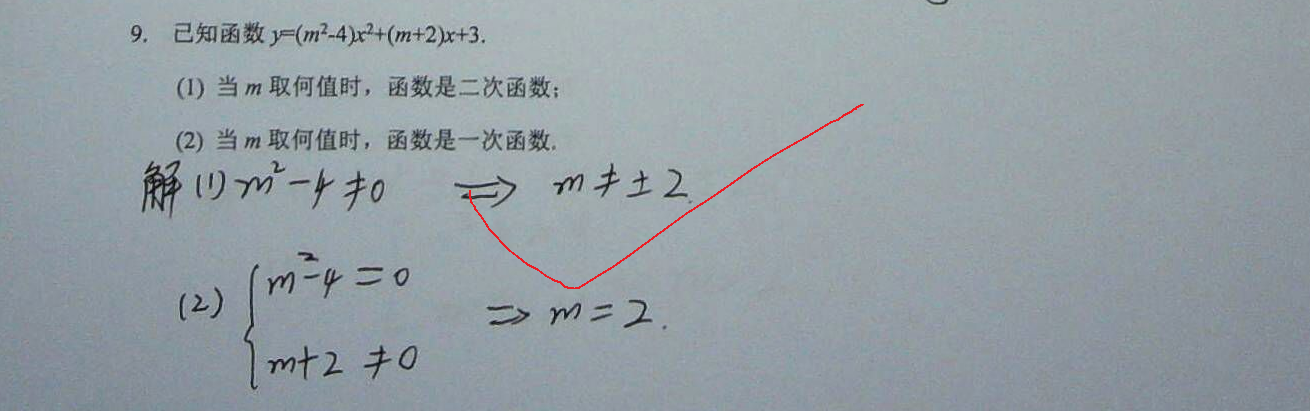 9. 已知函数 y=(m²-4)x²+(m+2)x+3.
(1) 当 m 取何值时，函数是二次函数；
(2) 当 m 取何值时，函数是一次函数.
解 (1) m²-4≠0 ⇒ m≠±2.
(2) { m²-4=0
m+2≠0
⇒ m=2.